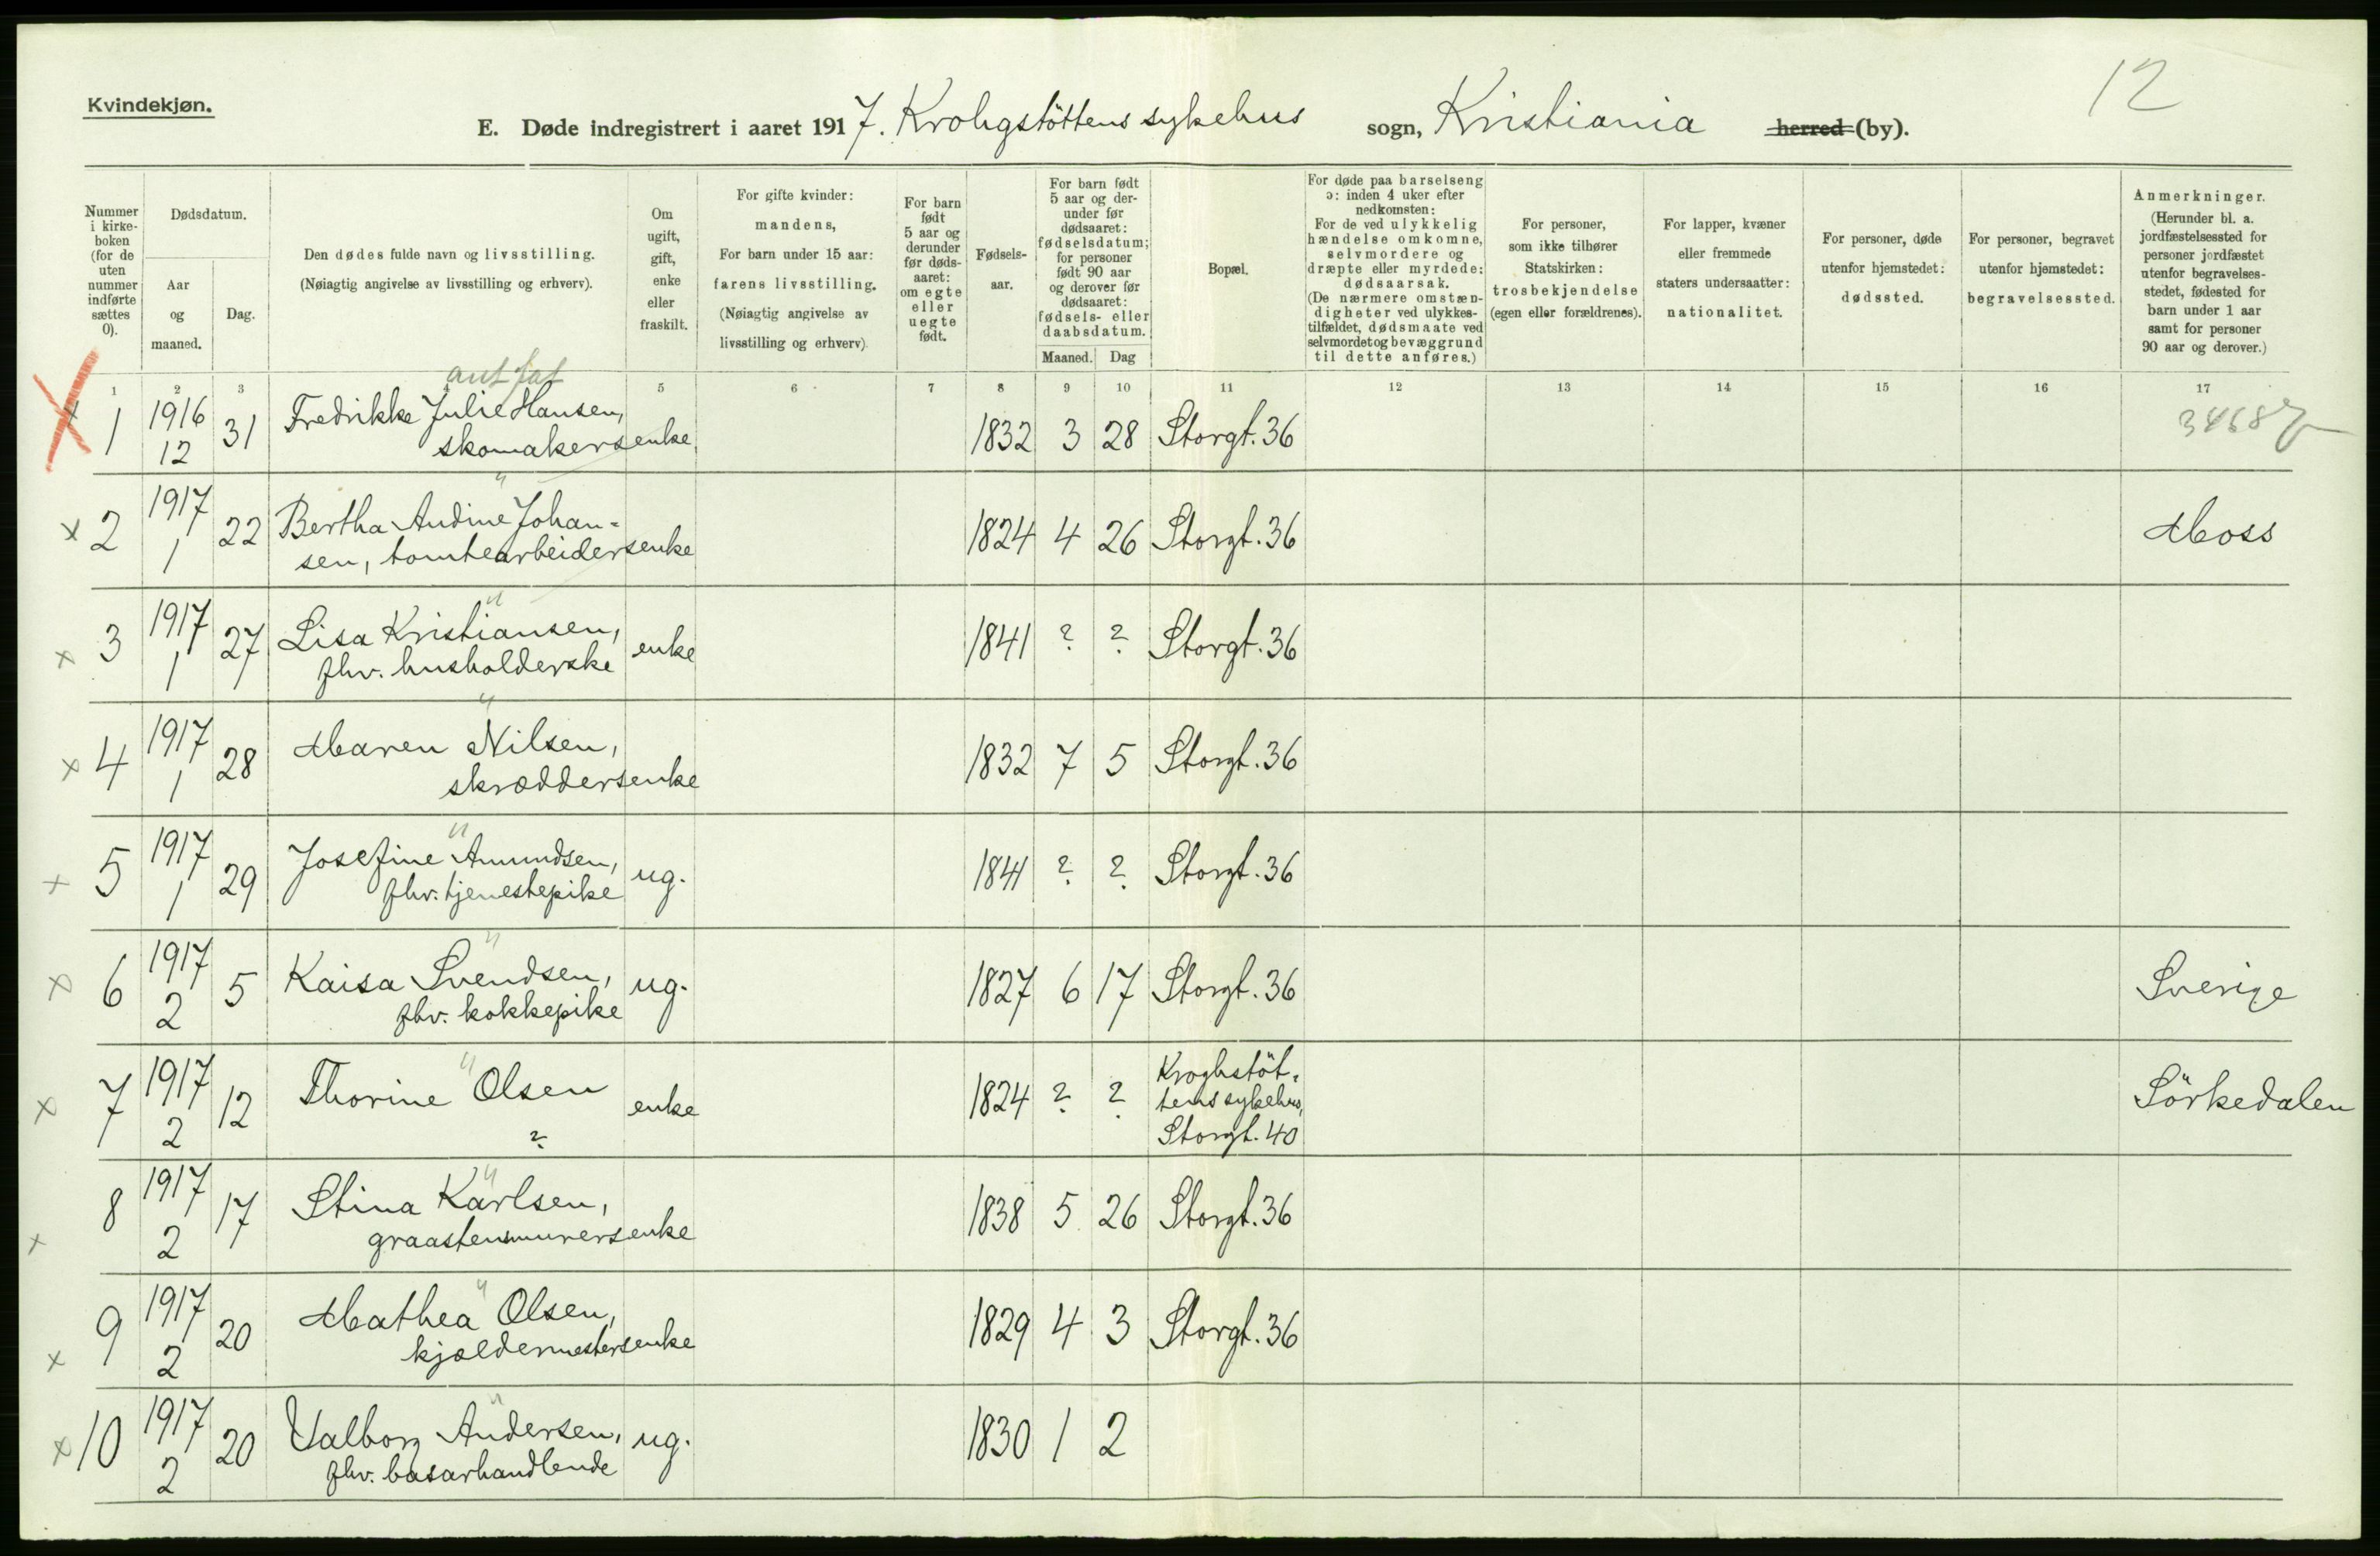 Kvindekjøn.
12
E. Døde indregistrert i aaret 1917. Krohgstöttens sykehus sogn, Kristiania herred (by).
Nummer i kirkeboken (for de uten nummer indførte sættes 0).
Dødsdatum.
Aar og maaned.
Dag.
Den dødes fulde navn og livsstilling.
(Nøiagtig angivelse av livsstilling og erhverv).
Om ugift, gift, enke eller fraskilt.
For gifte kvinder:
mandens,
For barn under 15 aar:
farens livsstilling.
(Nøiagtig angivelse av
livsstilling og erhverv)
For barn født 5 aar og derunder før dødsaaret: om egte eller uegte født.
Fødselsaar.
For barn født 5 aar og derunder før dødsaaret: fødselsdatum; for personer født 90 aar og derover før dødsaaret: fødsels- eller daabsdatum.
Maaned. Dag
Bopæl.
For døde paa barselseng
ɔ: inden 4 uker efter
nedkomsten:
For de ved ulykkelig
hændelse omkomne,
selvmordere og
dræpte eller myrdede:
dødsaarsak.
(De nærmere omstæn-
digheter ved ulykkes-
tilfældet, dødsmaate ved
selvmordet og bevæggrund
til dette anføres.)
For personer,
som ikke tilhører
Statskirken:
trosbekjendelse
(egen eller forældrenes).
For lapper, kvæner
eller fremmede
staters undersaatter:
nationalitet.
For personer, døde
utenfor hjemstedet:
dødssted.
For personer, begravet
utenfor hjemstedet:
begravelsessted.
Anmerkninger.
(Herunder bl. a.
jordfæstelsessted for
personer jordfæstet
utenfor begravelses-
stedet, fødested for
barn under 1 aar
samt for personer
90 aar og derover.)
1 2 3 4 5 6 7 8 9 10 11 12 13 14 15 16 17
x 1 1916 12 31 Fredrikke Julie Hansen,
skomakersenke 1832 3 28 Storgt. 36
x 2 1917 1 22 Bertha Andine Johan-
sen, tomtearbeidersenke 1824 4 26 Storgt. 36 Moss
x 3 1917 1 27 Lisa Kristiansen,
fhv. husholderske enke 1841 ? ? Storgt. 36
x 4 1917 1 28 Maren Nilsen,
skræddersenke 1832 7 5 Storgt. 36
x 5 1917 1 29 Josefine Amundsen,
fhv. tjenestepike ug. 1841 ? ? Storgt. 36
x 6 1917 2 5 Kaisa Svendsen,
fhv. kokkepike ug. 1827 6 17 Storgt. 36 Sverige
x 7 1917 2 12 Thorine Olsen
? enke 1824 ? ? Kroghstöt-
tens sykehus,
Storgt. 40 Sörkedalen
x 8 1917 2 17 Stina Karlsen,
graastensmurersenke 1838 5 26 Storgt. 36
x 9 1917 2 20 Mathea Olsen,
kjældermestersenke 1829 4 3 Storgt. 36
x 10 1917 2 20 Valborg Andersen,
fhv. basarhandlende ug. 1830 1 2